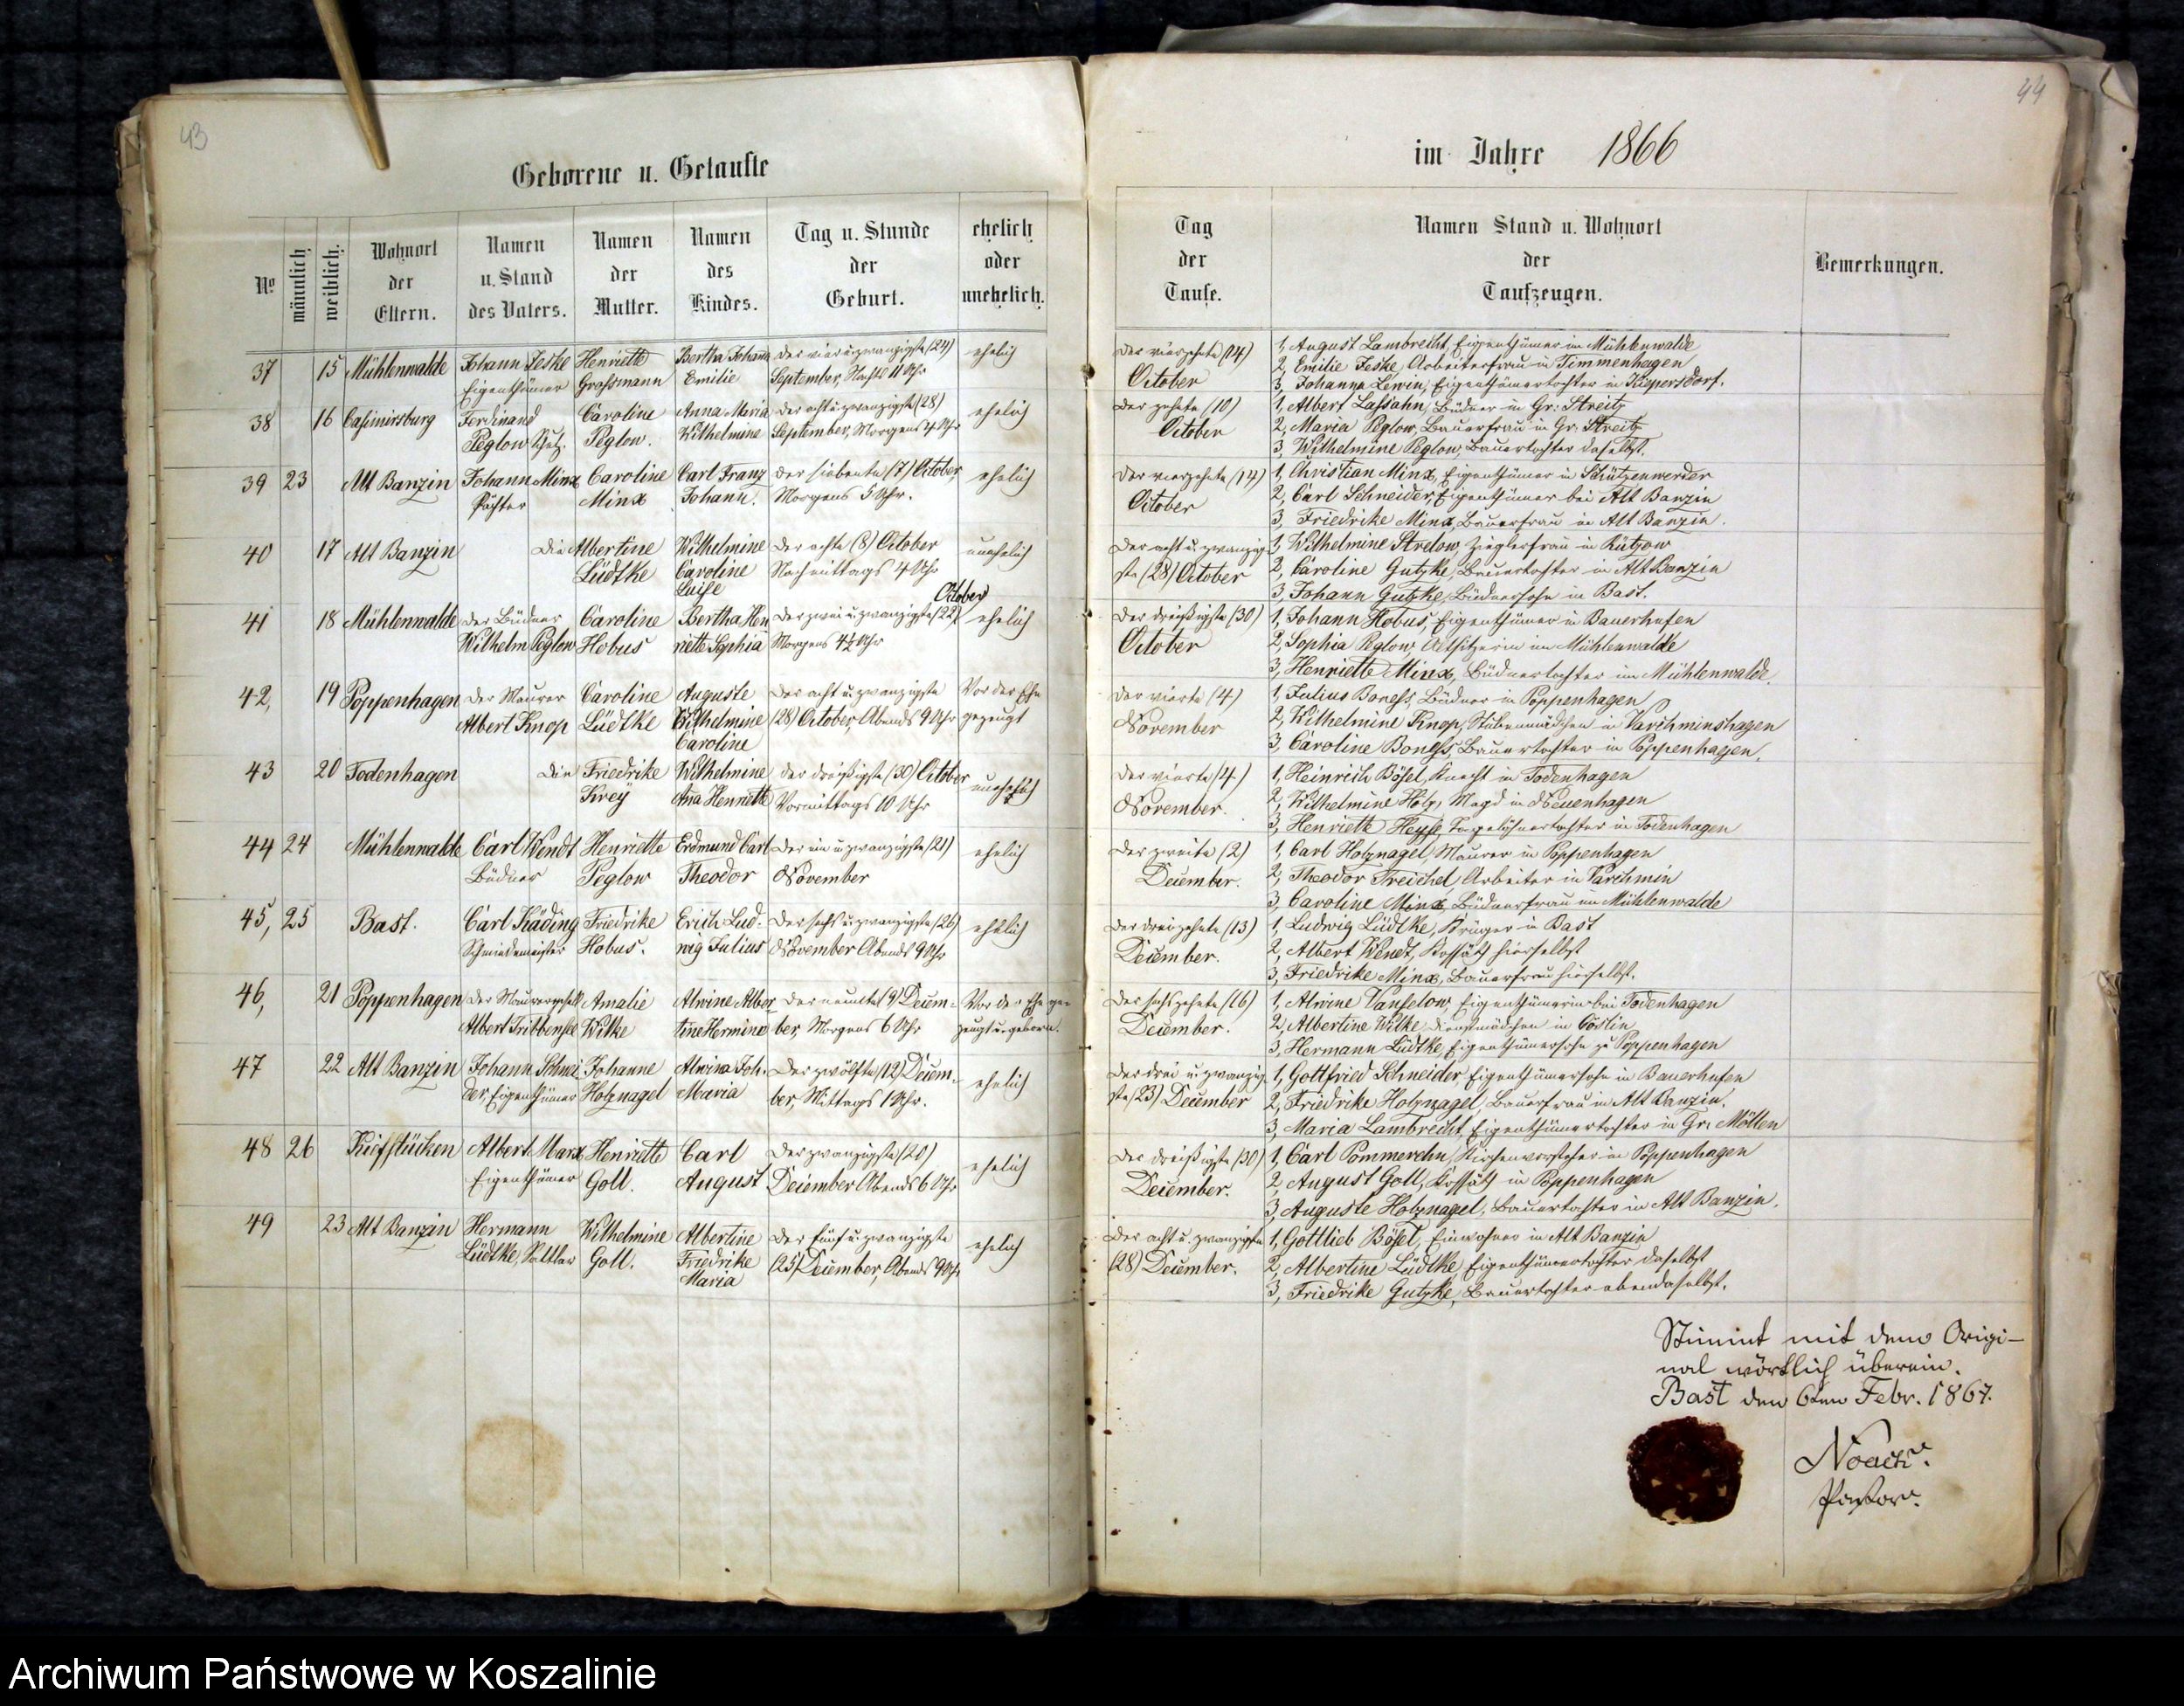 43
Geborene u. Getaufte
No
männlich.
weiblich.
Wohnort
der
Eltern.
Namen
u. Stand
des Vaters.
Namen
der
Mutter.
Namen
des
Kindes.
Tag u. Stunde
der
Geburt.
ehelich
oder
unehelich.
37 15 Mühlenwalde Johann Jeske Henriette Bertha Johanna der vier u. zwanzigste (24) ehelich
Eigenthümer Grassmann Emilie September, Nachts 11 Uhr
38 16 Casimirsburg Ferdinand Caroline Anna Maria der acht u. zwanzigste (28) ehelich
Peglow Peglow. Wilhelmine September, Morgens 4 Uhr
39 23 Alt Banzin Johann Minx Caroline Carl Franz der siebente (7) October, ehelich
Pächter Minx Johann. Morgens 5 Uhr.
40 17 Alt Banzin die Albertine Wilhelmine der achte (8) October unehelich
Lüdtke Caroline Nachmittags 4 Uhr
Luise
October
41 18 Mühlenwalde der Büdner Caroline Bertha Hen der zwei u. zwanzigste (22) ehelich
Wilhelm Peglow Hobus riette Sophia Morgens 4½ Uhr
42, 19 Poppenhagen der Maurer Caroline Auguste der acht u. zwanzigste Vor der Ehe
Albert Knop Lüdtke Wilhelmine (28) October, Abends 9 Uhr gezeugt
Caroline
43 20 Todenhagen die Friedrike Wilhelmine der dreißigste (30) October unehelich
Krey Ana Henriette Vormittags 10 Uhr
44 24 Mühlenwalde Carl Wendt Henriette Erdmund Carl der ein u. zwanzigste (21) ehelich
Büdner Peglow Theodor November
45, 25 Bast. Carl Käding Friedrike Erich Lud- der sechs u. zwanzigste (26) ehelich
Schmiedemeister Hobus. wig Julius November Abends 9 Uhr
46, 21 Poppenhagen der Maurergesell Amalie Alwine Alber- der neunte (9) Decem- Vor der Ehe ge-
Albert Tribbensee Wilke tine Hermine ber, Morgens 6 Uhr zeugt u. geboren.
47 22 Alt Banzin Johann Schnei- Johanne Alwina Joh. der zwölfte (12) Decem- ehelich
der Eigenthümer Holznagel Maria ber, Mittags 1 Uhr.
48 26 Kiefstücken Albert Marx Henriette Carl der zwanzigste (20) ehelich
Eigenthümer Goll. August December Abends 6 Uhr
49 23 Alt Banzin Hermann Wilhelmine Albertine der fünf u. zwanzigste ehelich
Lüdtke, Goll. Friedrike (25) December, Abends 9 Uhr
Maria
44
im Jahre 1866
Tag
der
Taufe.
Namen Stand u. Wohnort
der
Taufzeugen.
Bemerkungen.
der vierzehnte (14) 1, August Lambrecht, Eigenthümer in Mühlenwalde
October 2, Emilie Jeske, Arbeiterfrau in Timmenhagen
3, Johanna Lewin, Eigenthümertochter in Kiepersdorf.
der zehnte (10) 1, Albert Lassahn, Büdner in Gr: Streitz
October 2, Maria Peglow, Bauerfrau in Gr: Streitz
3, Wilhelmine Peglow, Bauertochter daselbst.
der vierzehnte (14) 1, Christian Minx, Eigenthümer in Schützenwerder
October 2, Carl Schneider, Eigenthümer bei Alt Banzin
3, Friedrike Minx, Bauerfrau in Alt Banzin.
der acht u. zwanzig- 1, Wilhelmine Strelow, Zieglerfrau in Kützow
ste (28) October 2, Caroline Gutzke, Bauertochter in Alt Banzin
3, Johann Gutzke, Büdnersohn in Bast.
der dreißigste (30) 1, Johann Hobus, Eigenthümer in Bauerhufen
October 2, Sophia Peglow, Altsitzerin im Mühlenwalde
3, Henriette Minx, Büdnertochter im Mühlenwalde.
der vierte (4) 1, Julius Boness, Büdner in Poppenhagen
November 2, Wilhelmine Knop, Stubenmädchen in Varchminshagen
3, Caroline Boness, Bauertochter in Poppenhagen.
der vierte (4) 1, Heinrich Bösel, Knecht in Todenhagen
November. 2, Wilhelmine Holz, Magd in Neuenhagen
3, Henriette Heyse, Tagelöhnertochter in Todenhagen
der zweite (2) 1, Carl Holznagel, Maurer in Poppenhagen
December. 2, Theodor Treichel, Arbeiter in Varchmin
3, Caroline Minx, Büdnerfrau im Mühlenwalde
der dreizehnte (13) 1, Ludwig Lüdtke, Krüger in Bast
December. 2, Albert Wendt, Kossäth hierselbst
3, Friedrike Minx, Bauerfrau hierselbst.
der sechszehnte (16) 1, Alwine Vanselow, Eigenthümerin bei Todenhagen
December. 2, Albertine Wilke, Dienstmädchen in Cöslin
3, Hermann Lüdtke, Eigenthümersohn zu Poppenhagen
der drei u. zwanzig- 1, Gottfried Schneider, Eigenthümersohn in Bauerhufen
ste (23) December 2, Friedrike Holznagel, Bauerfrau in Alt Banzin.
3, Maria Lambrecht, Eigenthümertochter in Gr: Möllen
der dreißigste (30) 1, Carl Pommerehn, Kirchenvorsteher in Poppenhagen
December. 2, August Goll, Kossäth in Poppenhagen
3, Auguste Holznagel, Bauertochter in Alt Banzin.
der acht u. zwanzigste 1, Gottlieb Bösel, Einwohner in Alt Banzin
(28) December. 2, Albertine Lüdtke, Eigenthümertochter daselbst
3, Friedrike Gutzke, Bauertochter ebendaselbst.
Stimmt mit dem Origi-
nal wörtlich überein.
Bast den 6ten Febr. 1867.
Noack.
Pastor.
Archiwum Państwowe w Koszalinie